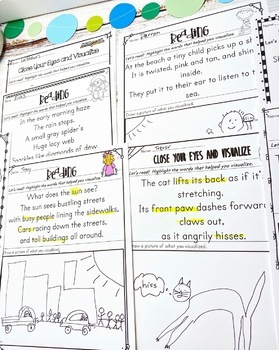 Close Your Eyes and Visualize
Reading
Let's read! Highlight the words that helped you visualize.
At the beach a tiny child picks up a s
It is twisted, pink and tan, and shin
inside.
They put it to their ear to listen to t
sea.
Draw a picture of what you visualized.
Reading
Let's read! Highlight the words that helped you visualize.
In the early morning haze
The rain stops.
A small gray spider's
Huge lacy web
Sparkles like diamonds of dew.
Name: Troy
Reading
Let's read! Highlight the words that helped you visualize.
What does the sun see?
The sun sees bustling streets
with busy people lining the sidewalks,
Cars racing down the streets,
and tall buildings all around.
Draw a picture of what you visualized.
Name: Trevor
CLOSE YOUR EYES AND VISUALIZE
Let's read! Highlight the words that helped you visualize.
The cat lifts its back as if it'
stretching.
Its front paw dashes forward
claws out,
as it angrily hisses.
Draw a picture of what you visualized.
hiss